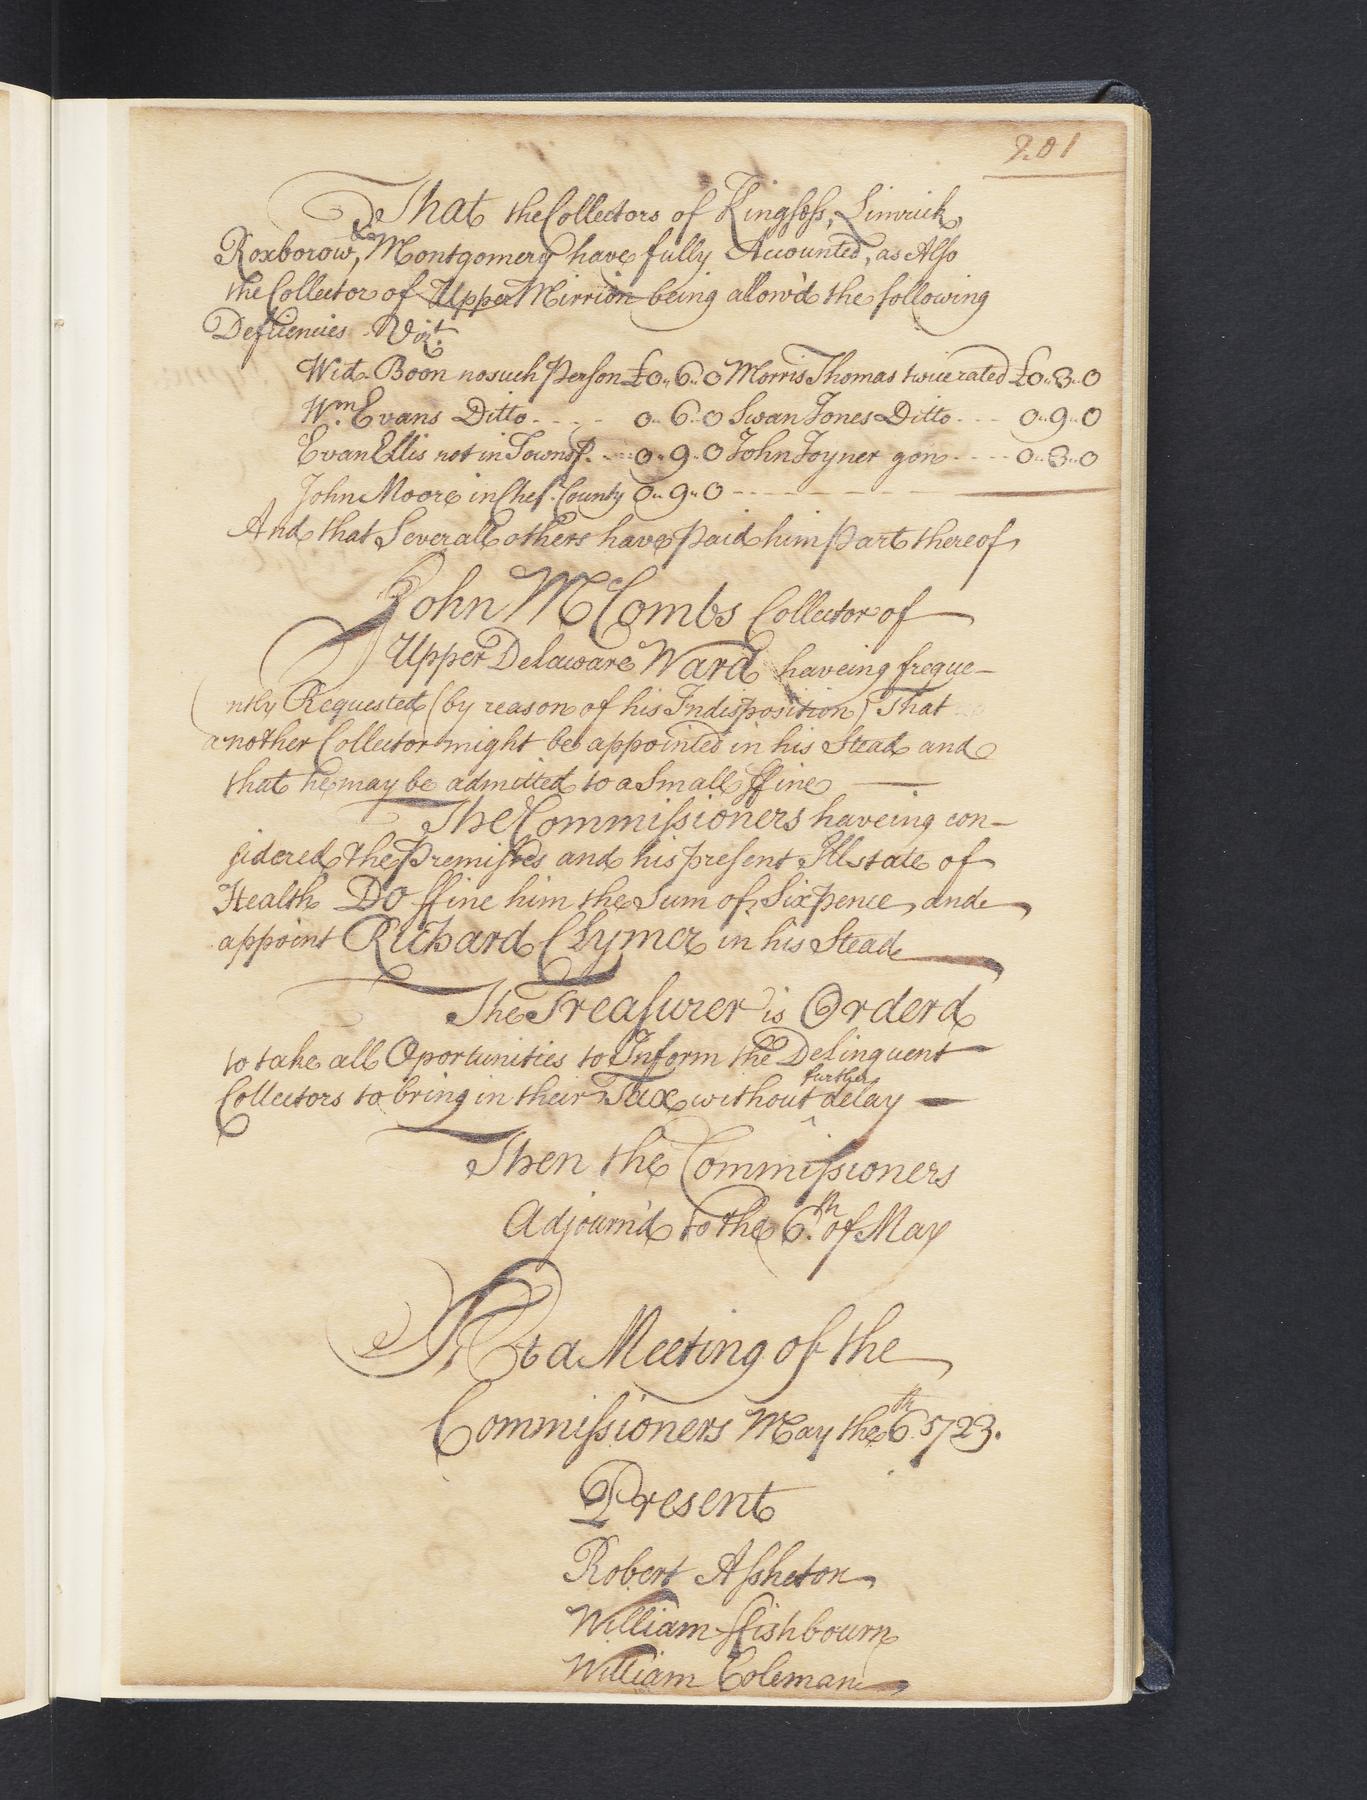 201
That the Collectors of Kingsess, Limrick,
Roxborow, & Montgomery have fully Accounted, as Also
the Collector of Upper Mirrion being allow'd the following
Deficiencies Vizt.
Wid. Boon no such person £0..6..0 Morris Thomas twice rated £0..3..0
Wm. Evans Ditto - - - - 0..6..0 Swan Jones Ditto - - - 0..9..0
Evan Ellis not in Townsp. - - - 0..9..0 John Joyner gon - - - - 0..3..0
John Moore in Ches. County 0..9..0 - - - - - -
And that Severall others have paid him part thereof
John McCombs Collector of
Upper Delaware Ward haveing freque-
ntly Requested (by reason of his Indisposition) That
another Collector might be appointed in his Stead and
that he may be admitted to a Small ffine
The Commissioners haveing con-
sidered the Premisses and his present Ill state of
Health Do ffine him the Sum of Sixpence, and
appoint Richard Clymer in his Stead
The Treasurer is Orderd
to take all Oportunities to Inform the Delinquent
Collectors to bring in their Tax without further delay
Then the Commissioners
Adjourn'd to the 6th of May
At a Meeting of the
Commissioners May the 6th 1723.
Present
Robert Assheton
William ffishbourn
William Coleman